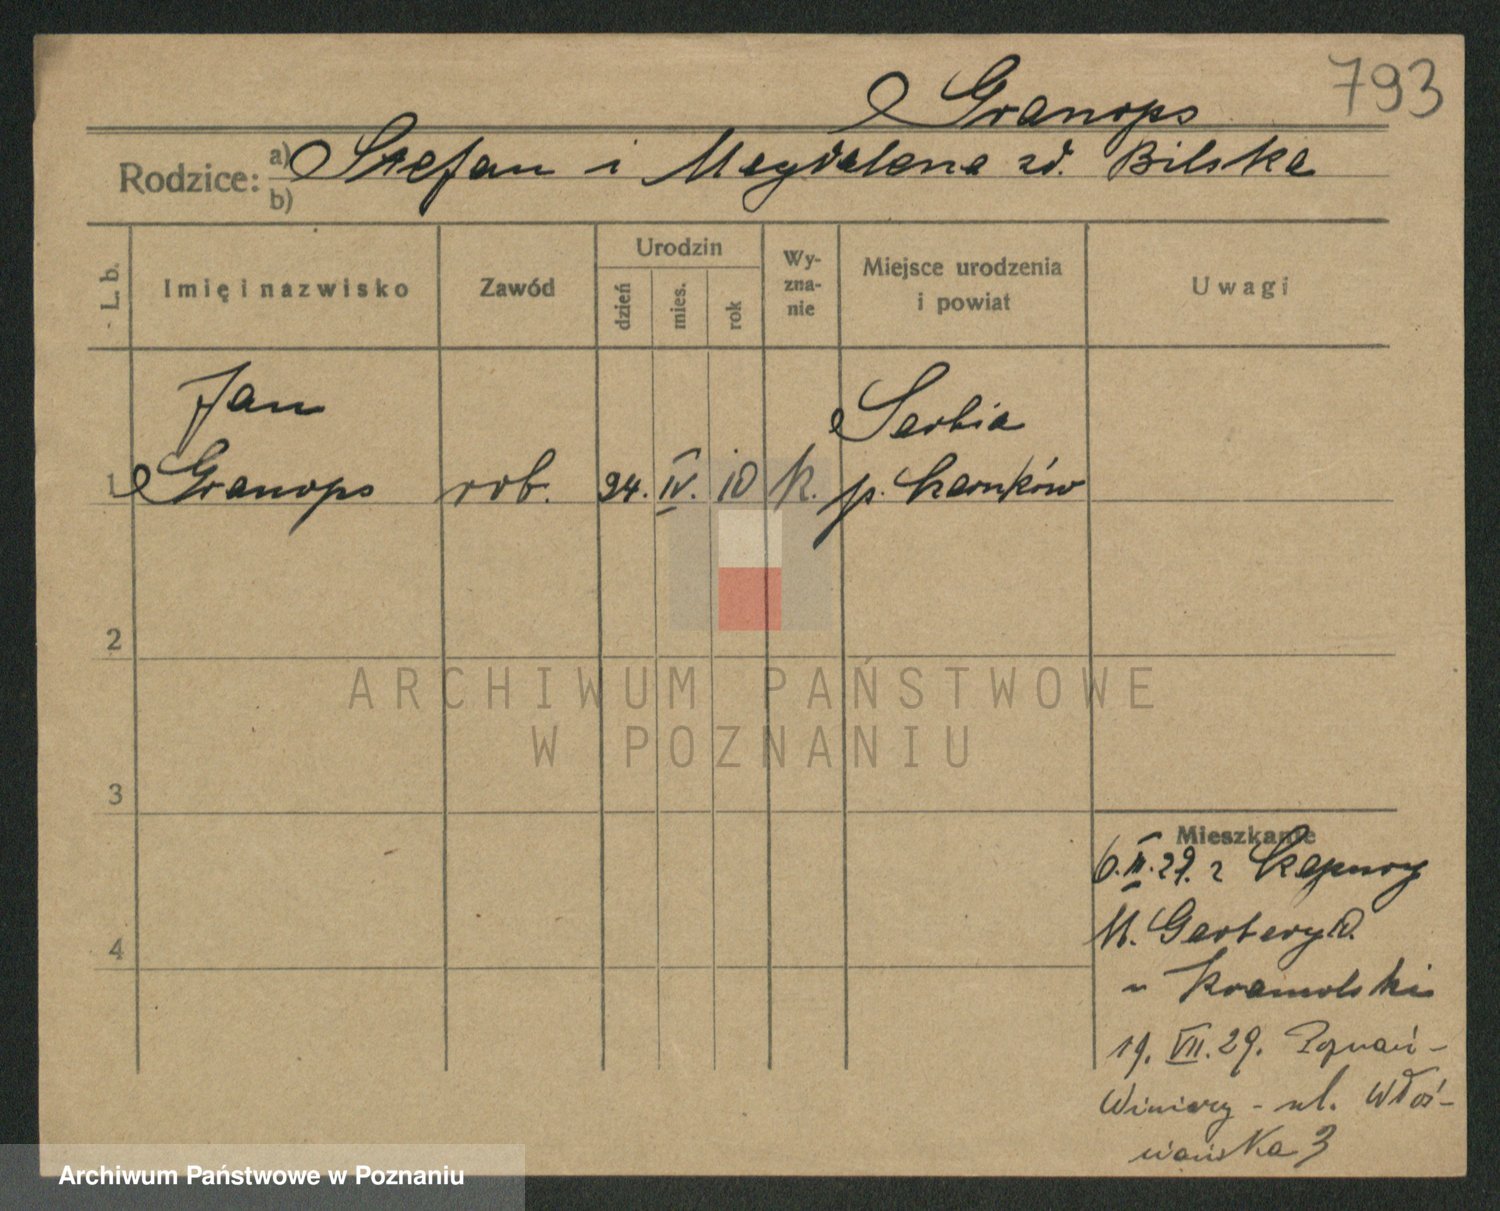 793
Granops
Rodzice: a) Stefan i Magdalena zd. Bilska
b)
L. b.
Imię i nazwisko
Zawód
Urodzin
dzień
mies.
rok
Wy-
zna-
nie
Miejsce urodzenia
i powiat
Uwagi
Jan
Serbia
1 Granops rob. 24. IV. 10 k. p. Czarnków
2
ARCHIWUM PAŃSTWOWE
W POZNANIU
3
4
Mieszkanie
6. II. 29. z Czapury
M. Garbary 10.
u Kramolski
19. VII. 29. Poznań-
Winiary - ul. Włoś-
ciańska 3
Archiwum Państwowe w Poznaniu